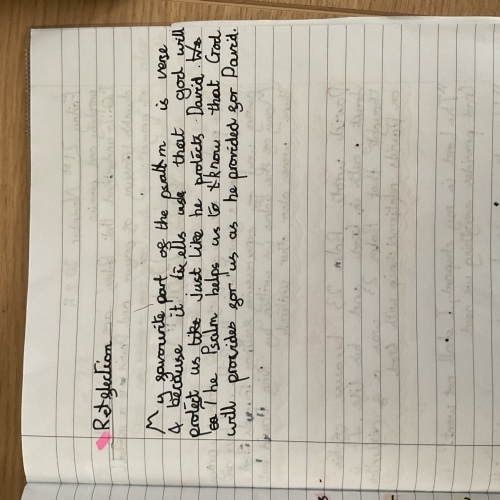 Reflection
My favourite part of the psalm is verse
4 because it tells us that god will
protect us like just like he protects David. We
The Psalm helps us to know that God
will provides for us as he provided for David.